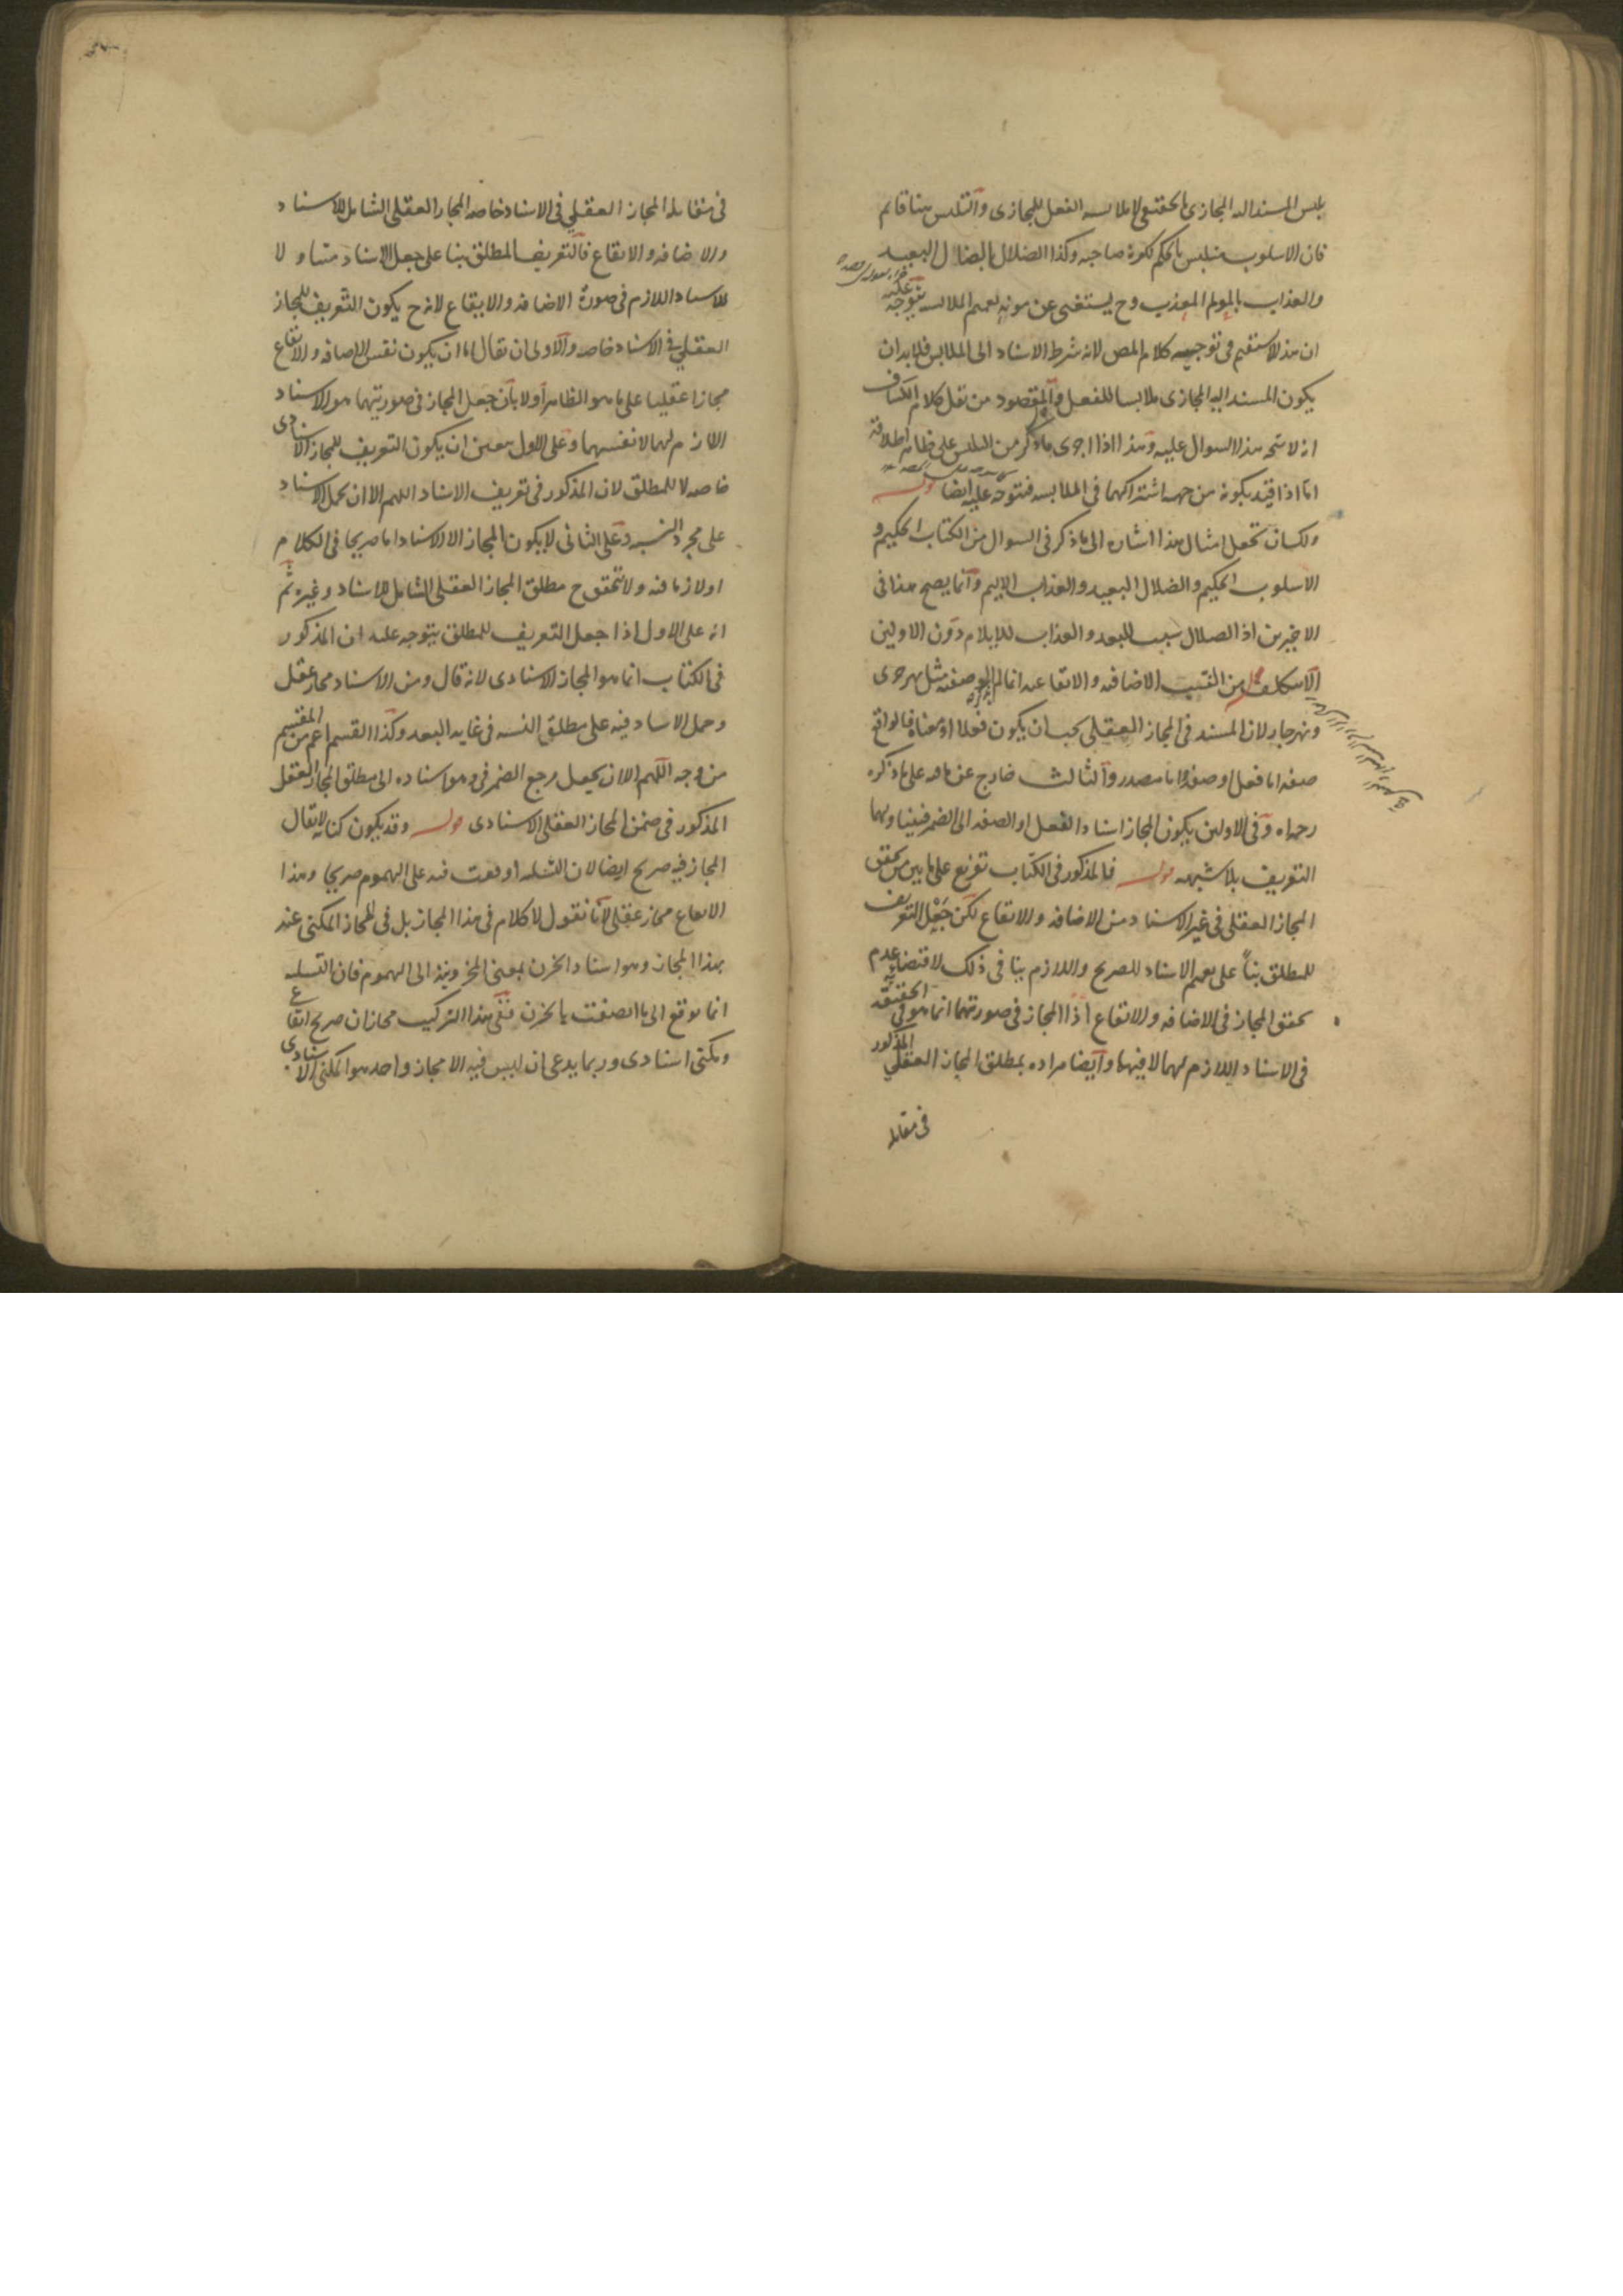 تلبس المسند اليه المجازى بالحقيقى لا ملابسه الفعل للمجازى والتلبس هنا قائم
فان الاسلوب متلبس بالحكيم لكونه صاحبه وكذا الضلال بالضال البعيد
والعذاب بالمولم المعذب وح يستغنى عن مونه تعميم الملابسه يتوجه عليه
ان هذا لا يستقيم فى توجيه كلام المص لانه شرط الاسناد الى الملابس فلا بد ان
يكون المسند اليه المجازى ملابسا للفعل والمقصود من نقل كلام الكشاف
انه لا يتجه هذا السوال عليه وهذا اذا اجرى ما ذكر من التلبس على ظاهر اطلاقه
اما اذا قيد بكونه من جهه اشتراكهما فى الملابسه فيتوجه عليه ايضا قوله
ولك ان تجعل امثال هذا اشاره الى ما ذكر فى السوال من الكتاب الحكيم و
الاسلوب الحكيم والضلال البعيد والعذاب الاليم وانما يصح هذا فى
الاخيرين اذ الضلال سبب للبعد والعذاب للايلام دون الاولين
من النسب الاضافيه والايقاعيه انما لم مثل نهر جرى
ونهر جار لان المسند فى المجاز العقلى يجب ان يكون فعلا او معناه فالواقع
صفه اما فعل او صفه واما مصدر والثالث خارج عن ما هو على ما ذكره
رحمه الله وفى الاولين يكون المجاز اسناد الفعل او الصفه الى الضمير فيتناولهما
التعريف بلا شبهه قوله فالمذكور فى الكتاب تفريع على ما بين من تحقق
المجاز العقلى فى غير الاسناد من الاضافه والايقاع لكن جعل التعريف
للمطلق بناً على تعميم الاسناد للصريح واللازم ينافى ذلك لاقتضائه عدم
تحقق المجاز فى الاضافه والايقاع اذا المجاز فى صورتهما انما هو فى الحقيقه
فى الاسناد اللازم لهما لا فيهما وايضا مراده بمطلق المجاز العقلى المذكور
فى مقابله
فى مقابله المجاز العقلى فى الاسناد خاصه المجاز العقلى الشامل للاسناد
والاضافه والايقاع فالتعريف للمطلق بنا على جعل الاسناد متناولا
للاسناد اللازم فى صورة الاضافه والايقاع لانه ح يكون التعريف للمجاز
العقلى فى الاسناد خاصه والاولى ان يقال اما ان يكون نفس الاضافه والايقاع
مجازا عقليا على ما هو الظاهر اولا بان جعل المجاز فى صورتيهما هو الاسناد
اللازم لهما لا نفسهما وعلى الاول يتعين ان يكون التعريف للمجاز الاسنادى
خاصه لا للمطلق لان المذكور فى تعريف الاسناد اللهم الا ان يحمل الاسناد
على مجرد النسبه وعلى الثانى لا يكون المجاز الا الاسناد اما صريحا فى الكلام
او لازما منه ولا يتحقق ح مطلق المجاز العقلى الشامل للاسناد وغيره ثم
انه على الاول اذا جعل التعريف للمطلق يتوجه عليه ان المذكور
فى الكتاب انما هو المجاز الاسنادى لانه قال ومن الاسناد مجاز عقلى
وحمل الاسناد فيه على مطلق النسبه فى غايه البعد وكذا القسم اعم من المقسم
من وجه اللهم الا ان يجعل مرجع الضمير فى وهو اسناده الى مطلق المجاز العقلى
المذكور فى ضمن المجاز العقلى الاسنادى قوله وقد يكون كنايه لا يقال
المجاز فيه صريح ايضا لان التسليه اوقعت فيه على الهموم صريحا وهذا
الايقاع مجاز عقلى لانا نقول لا كلام فى هذا المجاز بل فى المجاز المكنى عنه
بهذا المجاز وهو اسناد الحزن بمعنى المحزونيه الى الهموم فان التسليه
انما توقع الى ما اتصفت بالحزن ففى هذا التركيب مجازان صريح ايقاعى
ومكنى اسنادى وربما يدعى ان ليس فيه الا مجاز واحد هو المكنى الاسنادى